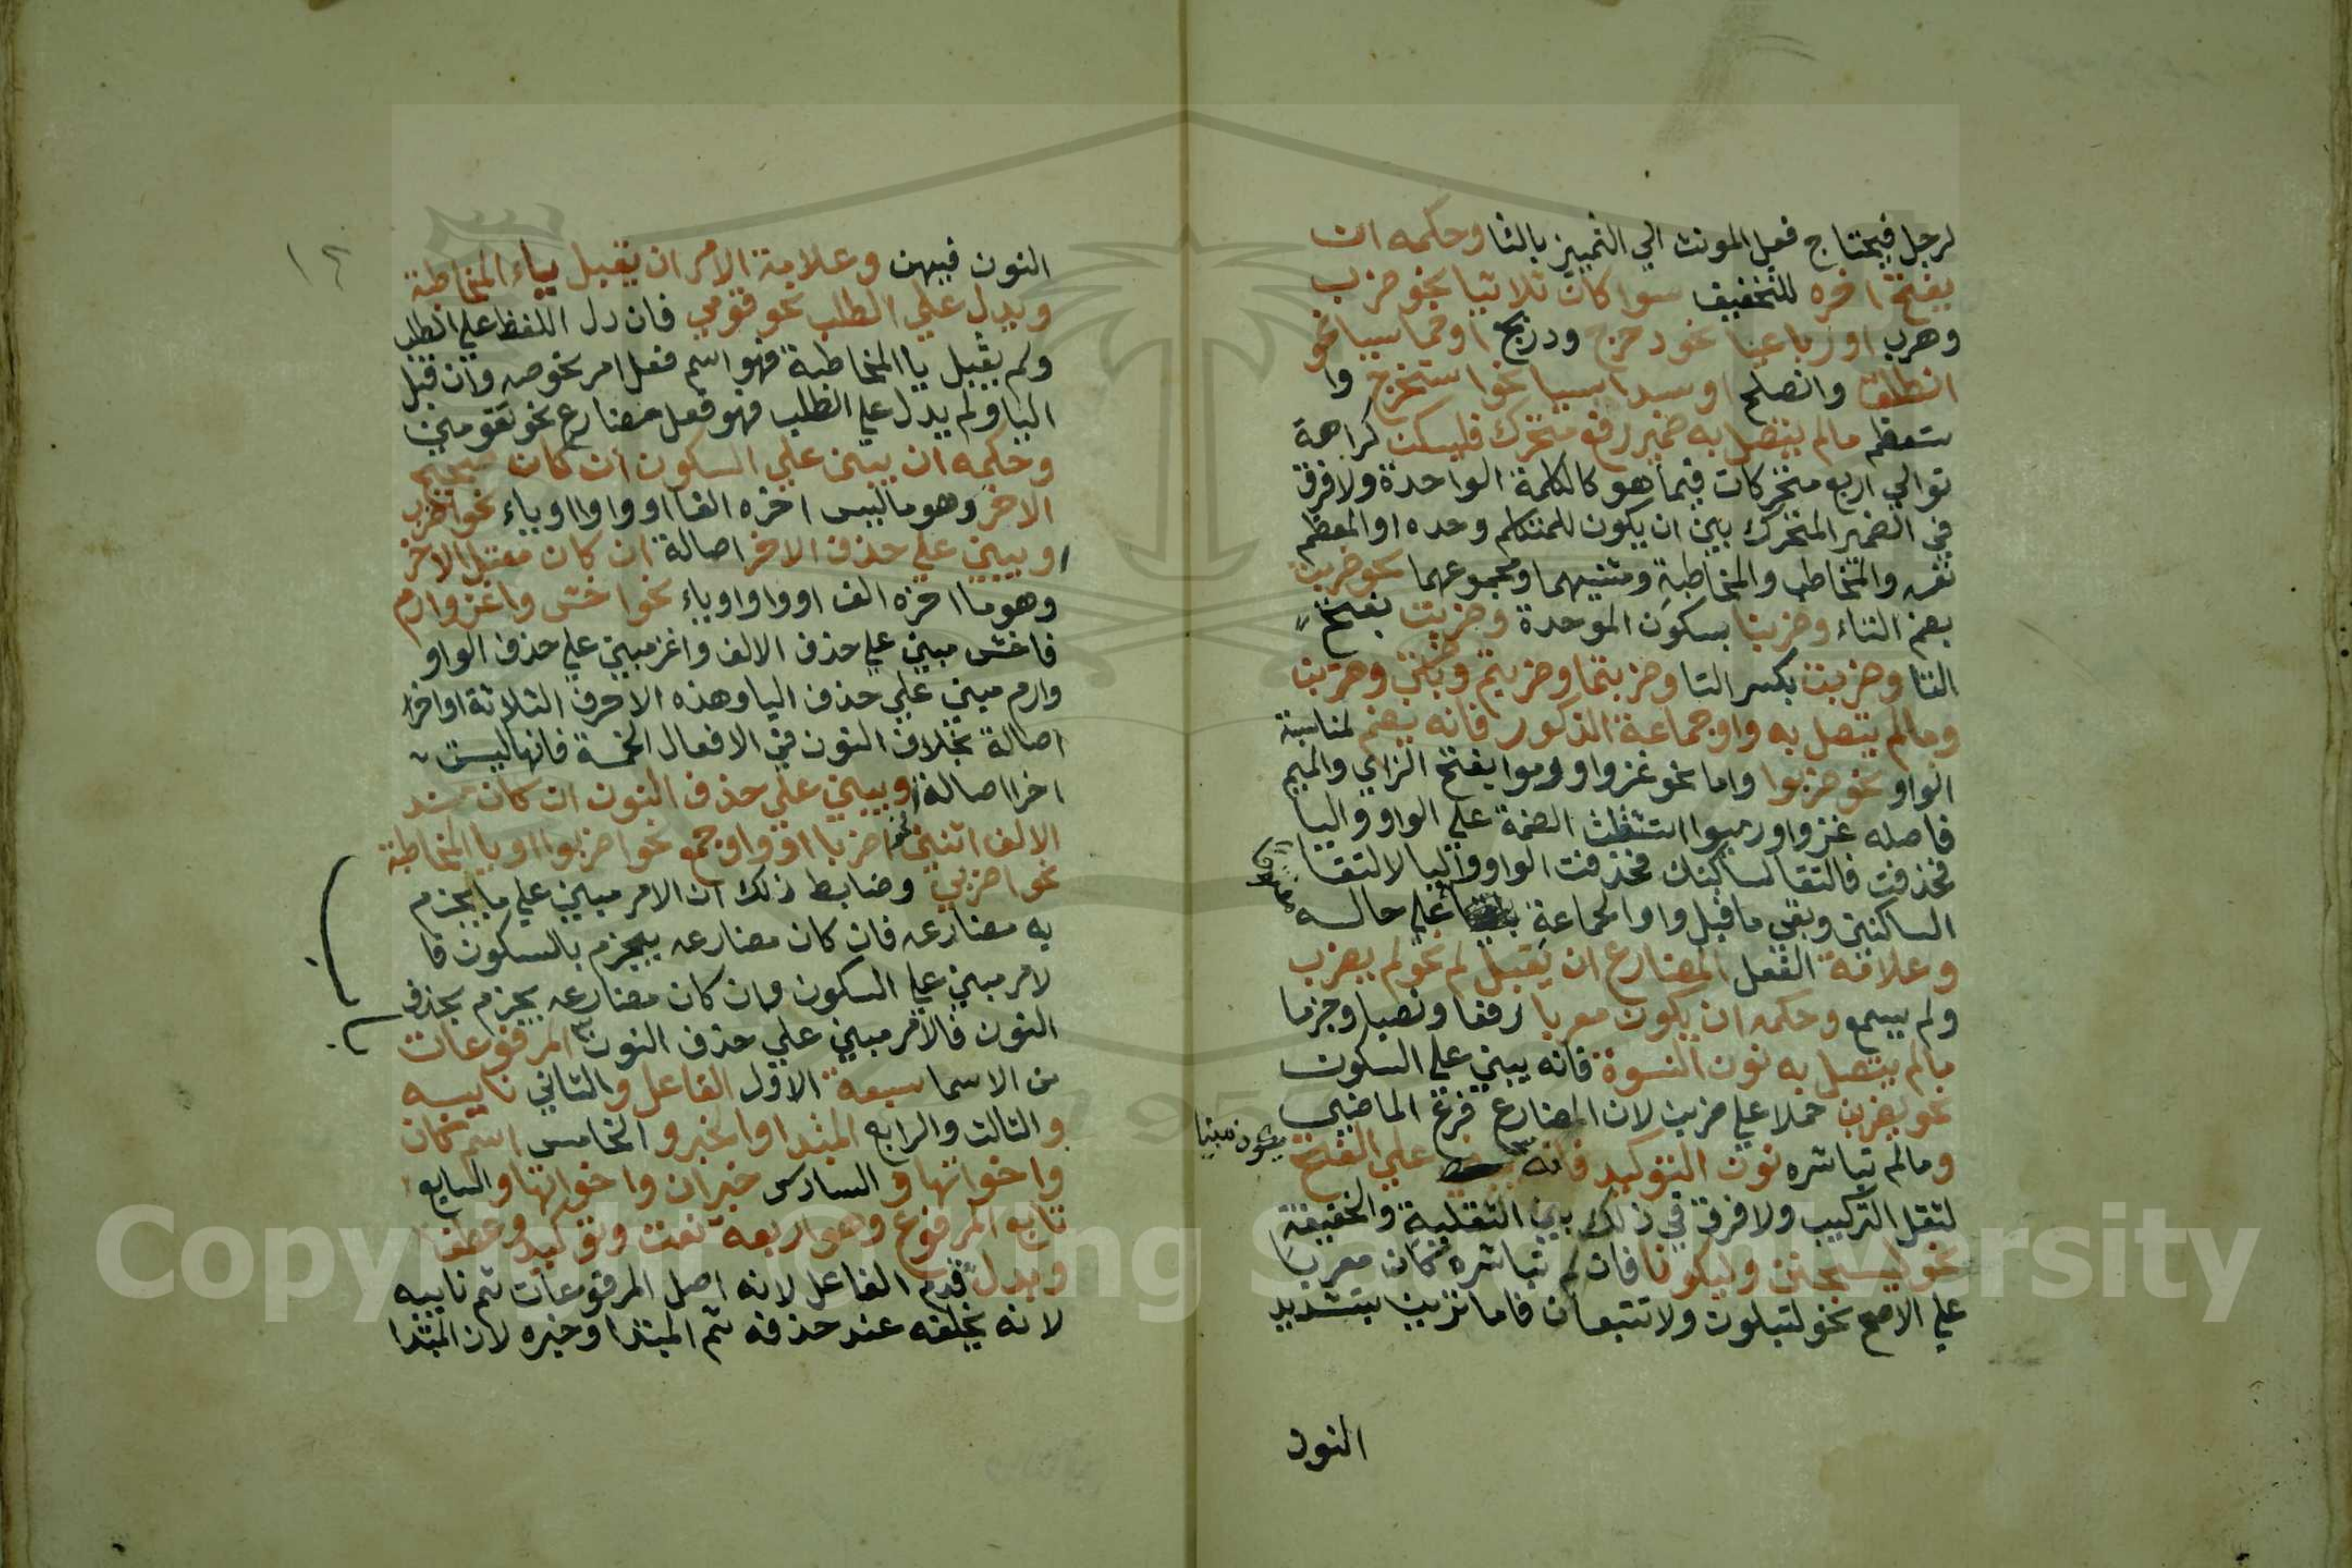 لرجل فيحتاج فعل المونث الي التمييز بالتا وحكمه ان
يفتح اخره للتخفيف سوا كان ثلاثيا نحو ضرب
وهرب او رباعيا نحو دحرج ودربح او خماسيا نحو
انطلق وانصلح او سداسيا نحو استخرج وا
ستعظم مالم يتصل به ضمير رفع متحرك فليسكن كراهة
توالي اربع متحركات فيما هو كالكلمة الواحدة ولا فرق
في الضمير المتحرك بين ان يكون للمتكلم وحده او المعظم
نفسه والمخاطب والمخاطبة ومثنيهما ومجموعهما نحو ضربت
بضم التاء وضربنا بسكون الموحدة وضربت بفتح
التا وضربت بكسر التا وضربتما وضربتم وضربتن وضربن
ومالم يتصل به واو جماعة الذكور فانه يضم لمناسبة
الواو نحو ضربوا واما نحو غزوا ورموا بفتح الزاي والميم
فاصله غزووا ورميوا استثقلت الضمة علي الواو واليا
فحذفت فالتقا ساكنان فحذفت الواو واليا لالتقا
الساكنين وبقي ما قبل واو الجماعة علي حاله
مفتوحا
وعلامة الفعل المضارع ان يقبل لم نحو لم يضرب
ولم يسمع وحكمه ان يكون معربا رفعا ونصبا وجزما
مالم يتصل به نون النسوة فانه يبني علي السكون
نحو يضربن حملا علي ضربن لان المضارع فرع الماضي
ومالم تباشره نون التوكيد فانه علي الفتح
يكون مبنيا
لثقل التركيب ولا فرق في ذلك بين الثقيلة والخفيفة
نحو ليسجنن وليكونا فان لم تباشره كان معربا
علي الاصح نحو لتبلون ولا تتبعان فاما ترين بتشديد
النون
١٢
النون فيهن وعلامة الامر ان يقبل ياء المخاطبة
ويدل علي الطلب نحو قومي فان دل اللفظ علي الطلب
ولم يقبل يا المخاطبة فهو اسم فعل امر نحو صه وان قبل
اليا ولم يدل علي الطلب فهو فعل مضارع نحو تقومين
وحكمه ان يبني علي السكون ان كان صحيح
الاخر وهو ما ليس اخره الفا او واوا او ياء نحو اضرب
ويبني علي حذف الاخر اصالة ان كان معتل الاخر
وهو ما اخره الف او واو او ياء نحو اخش واغز وارم
فاخش مبني علي حذف الالف واغز مبني علي حذف الواو
وارم مبني علي حذف اليا وهذه الاحرف الثلاثة اواخر
اصالة بخلاف النون في الافعال الخمسة فانها ليست
اخرا اصالة ويبني علي حذف النون ان كان مسند
الالف اثنين نحو اضربا او واو جمع نحو اضربوا او يا المخاطبة
نحو اضربي وضابط ذلك ان الامر مبني علي ما يجزم
به مضارعه فان كان مضارعه يجزم بالسكون فا
لامر مبني علي السكون وان كان مضارعه يجزم بحذف
النون فالامر مبني علي حذف النون المرفوعات
من الاسما سبعة الاول الفاعل والثاني نايبه
والثالث والرابع المبتدا والخبر والخامس اسم كان
واخواتها والسادس خبر ان واخواتها والسابع
تابع المرفوع وهو اربعة نعت وتوكيد وعطف
وبدل قدم الفاعل لانه اصل المرفوعات ثم نايبه
لانه يخلفه عند حذفه ثم المبتدا وخبره لان المبتدا
Copyright © King Saud University